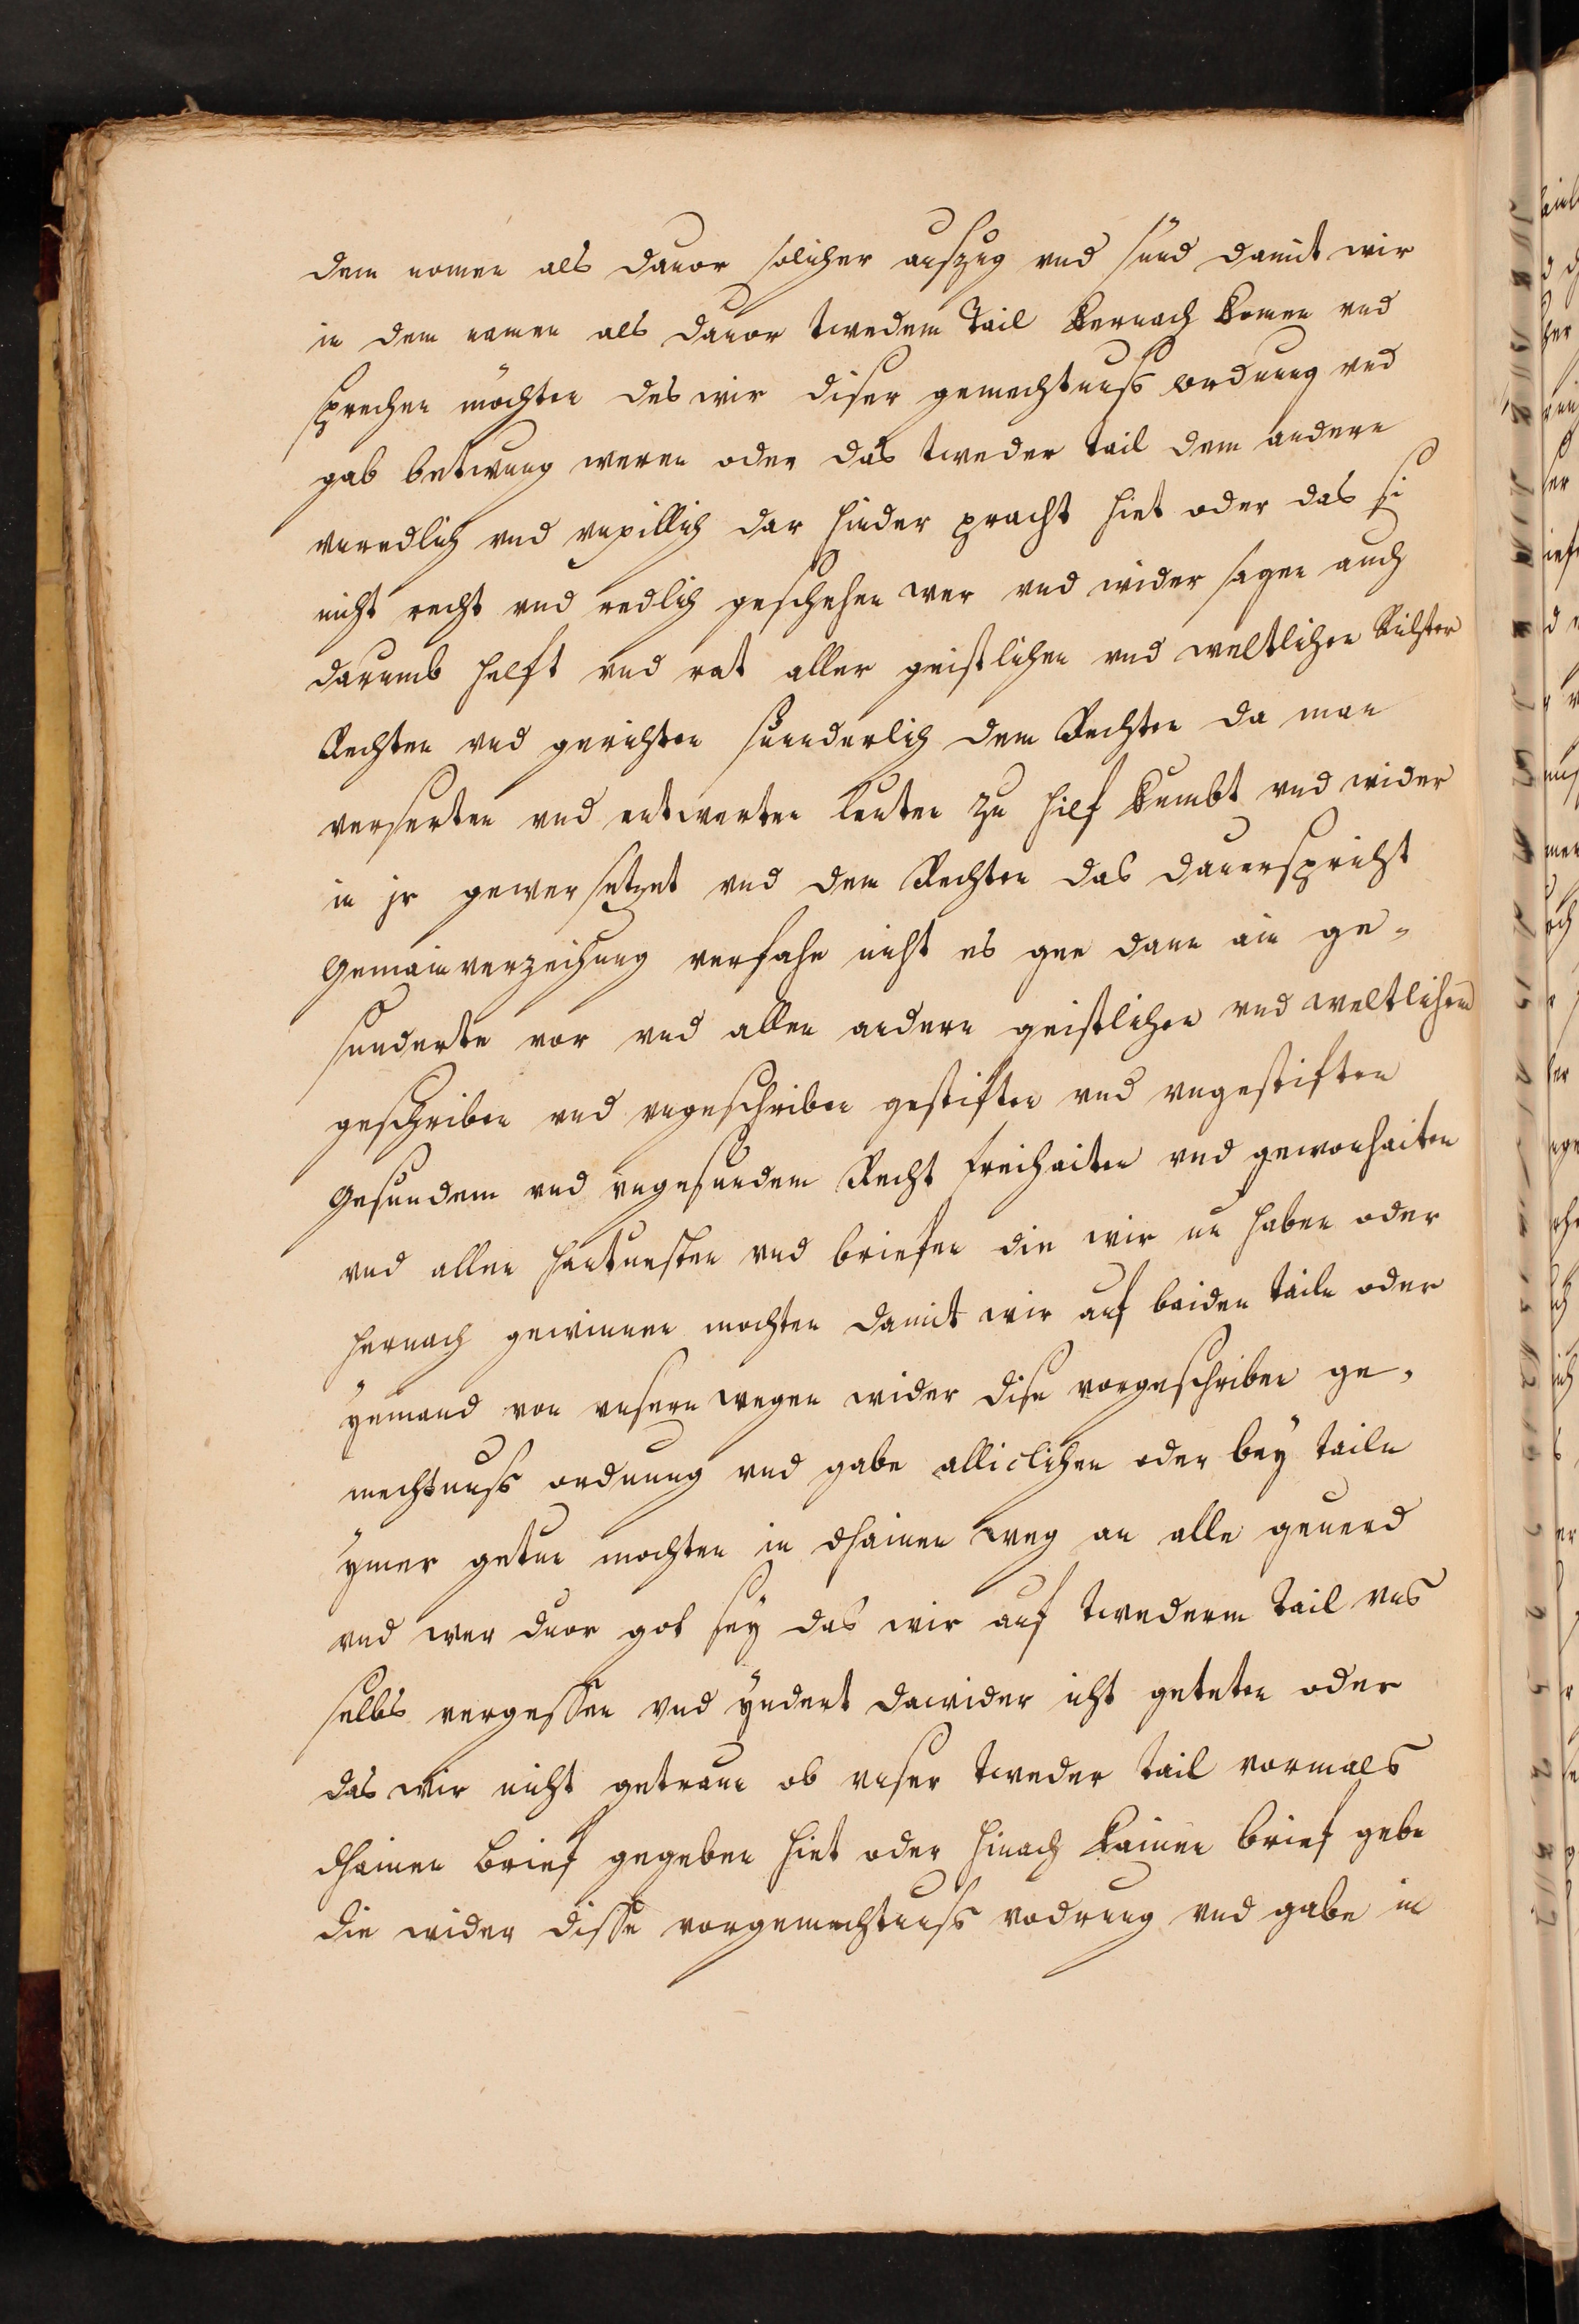 dem nomen als dauor solicher auszug vnd sünd damit wir
in dem namen als dauor twedem Tail kernach komen vnd
sprechen möchten des wir diser gemechtnuss ordnung vnd
gab betwung weren oder das tweder tail dem andern
vnredlich vnd vnpillich dar hinder pracht hiet oder das si
nicht recht vnd redlich geschehen wer vnd wider sagen auch
darumb helft vnd rat aller geistlichen vnd weltlichen Richter
Rechten vnd gerichten sunderlich dem Rechten da man
verserten vnd entwerten leuten zu hilf kumbt vnd wider
in jr gewer setzet vnd dem Rechten das dauerspricht
Gemain verzeihung verfahe nicht es gee dann ain ge-
sunderte vor vnd allen andern geistlichen vnd weltlichen
geschriben vnd vngeschriben gestiften vnd vngestiften
Gesundem vnd vngesundem Recht freihaiten vnd gewonhaiten
vnd allen hantuesten vnd briefen die wir nu haben oder
hernach gewinnen mochten damit wir auf baiden tailn oder
yemand von vnsern wegen wider dise vorgeschriben ge-
mechtnuss ordnung vnd gabe alliclichen oder bey tailn
ymer getun mochten in dhainen weg an alle geuerd
vnd wer duor got sey das wir auf twederm Tail vns
selbs vergessen vnd yndert dawider icht geteten oder
das wir nicht getraun ob vnser tweder tail vormals
dhainen brief gegeben hiet oder hinach kainen brief gebe
die wider disse vorgemechtnuss vodrung vnd gabe in